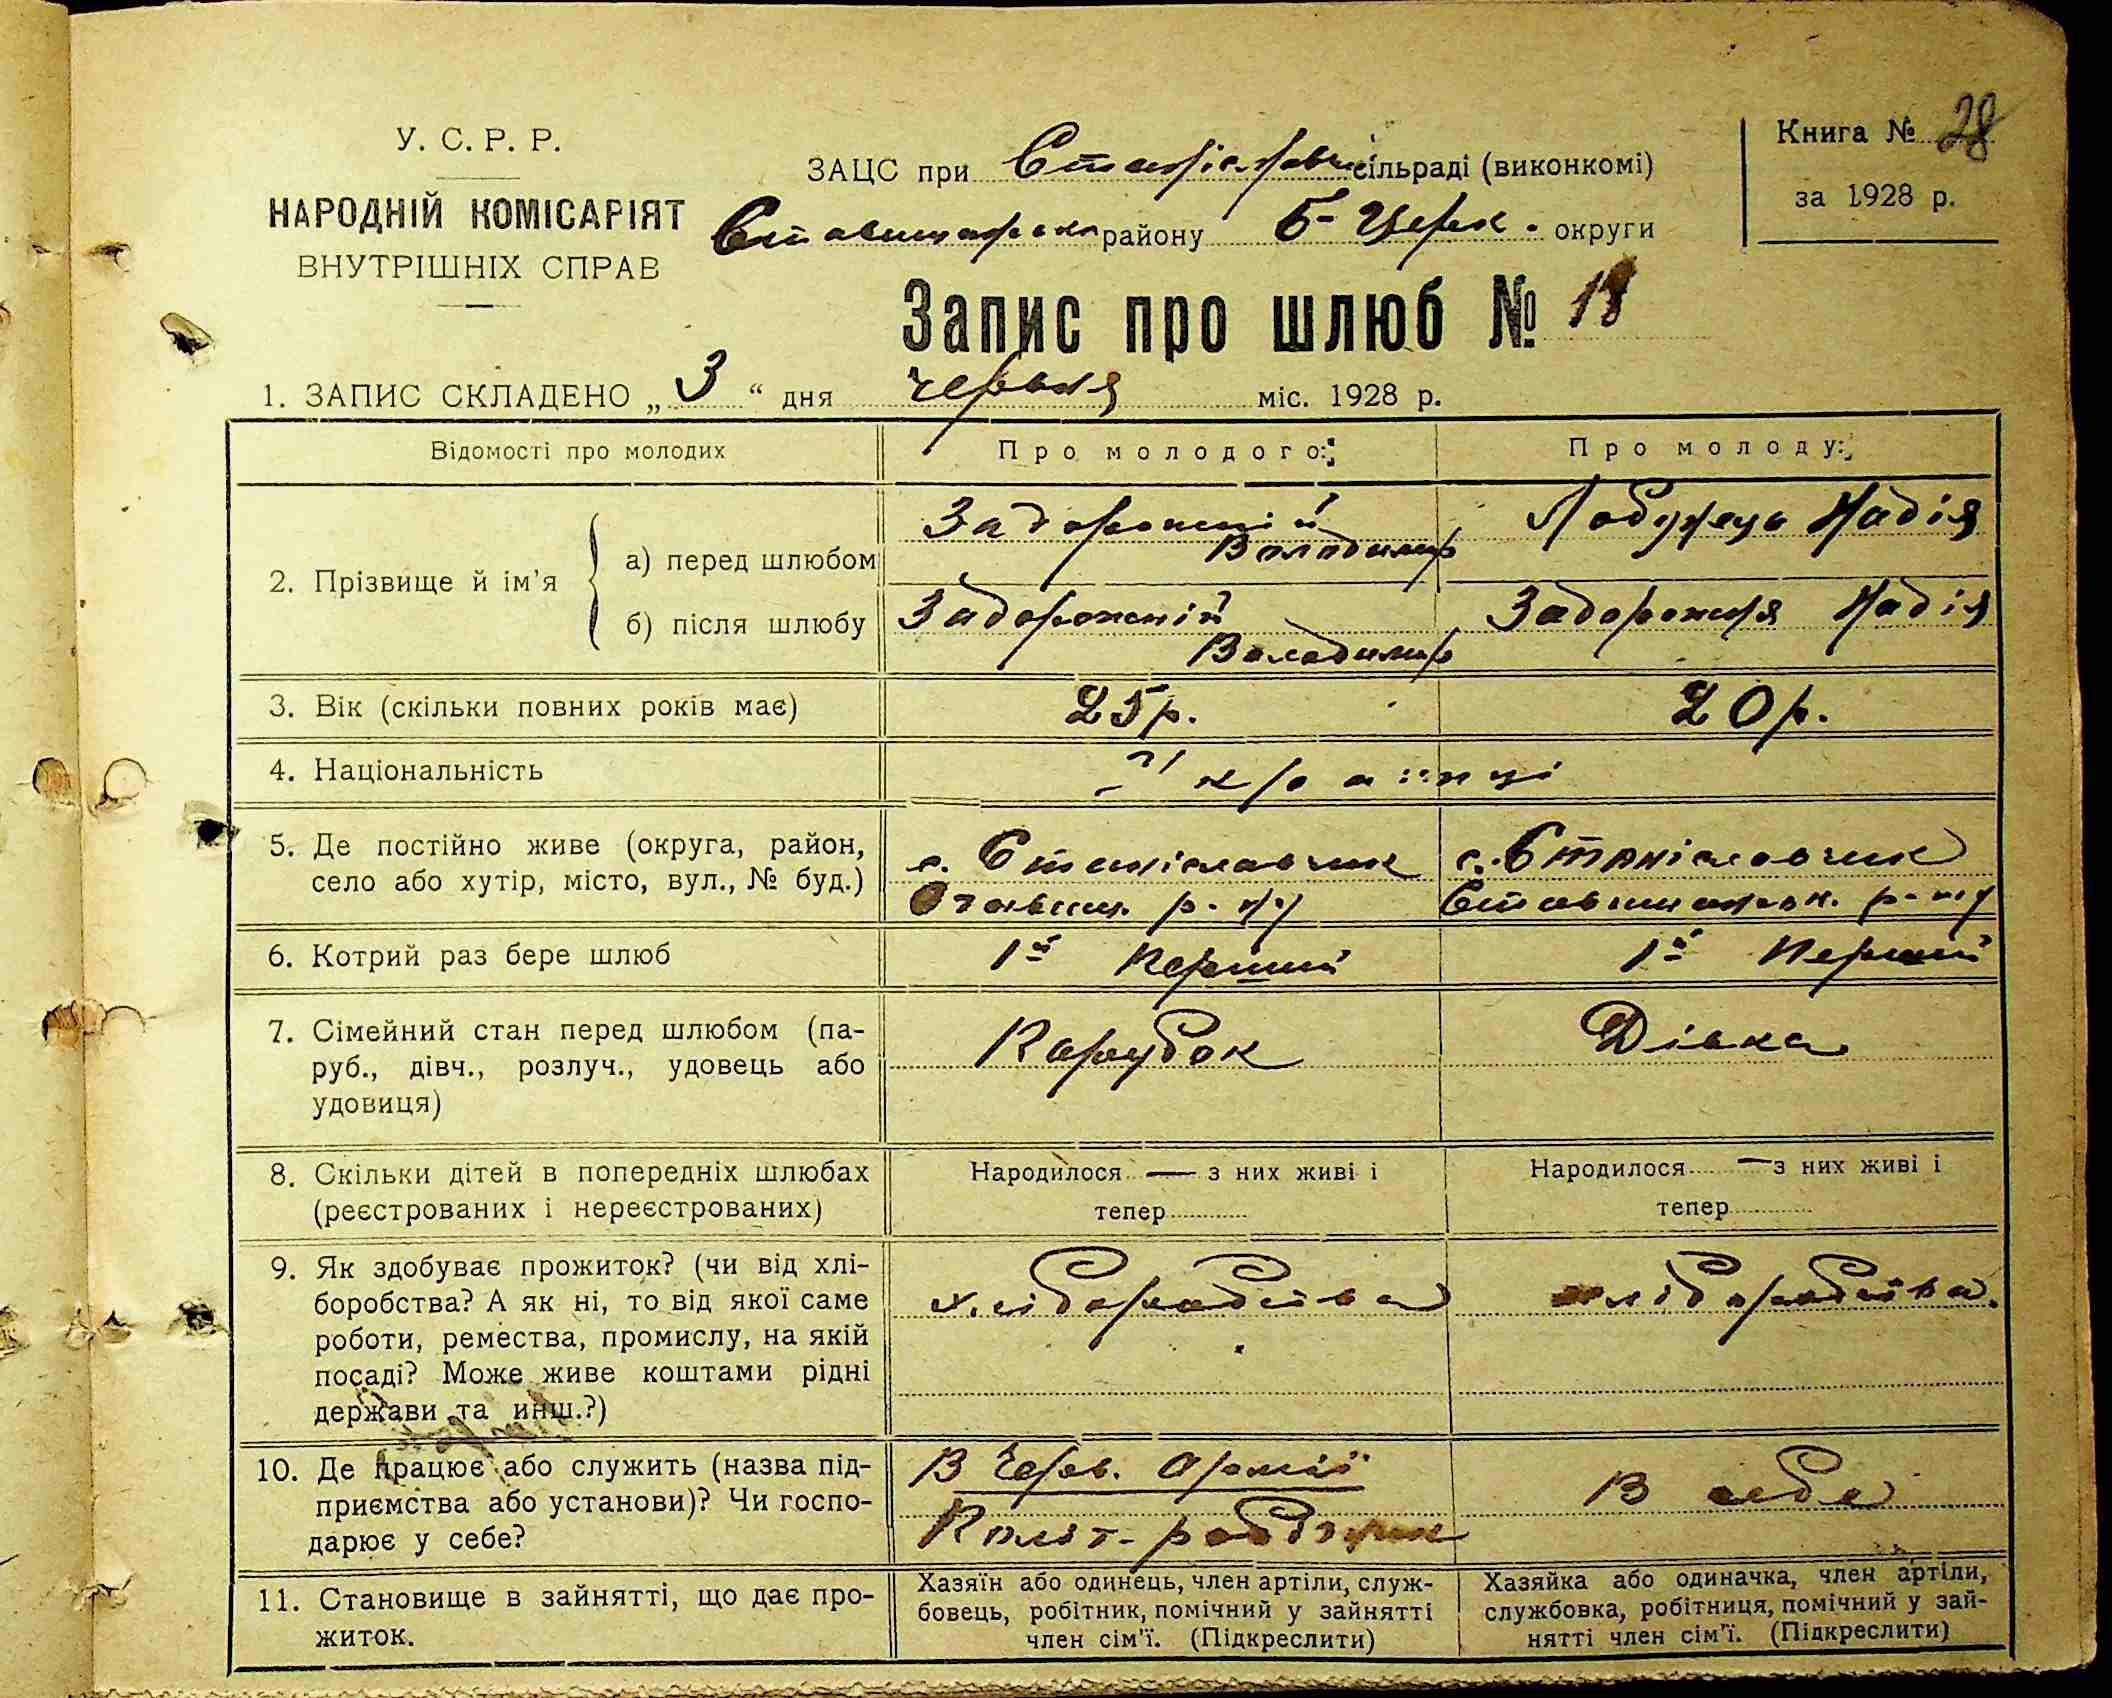 У. С. Р. Р.
НАРОДНІЙ КОМІСАРІЯТ
ВНУТРІШНІХ СПРАВ
ЗАЦС при Станіславч. сільраді (виконкомі)
району Б-Церк. округи
Книга № 28
за 1928 р.
Запис про шлюб № 18
1. ЗАПИС СКЛАДЕНО „ 3 “ дня червня міс. 1928 р.
Відомості про молодих
Про молодого:
Про молоду:
2. Прізвище й ім’я
а) перед шлюбом
Задорожній
Володимир
Надія
б) після шлюбу
Задорожній
Володимир
Задорожня Надія
3. Вік (скільки повних років має)
25 р.
20 р.
4. Національність
Українці
5. Де постійно живе (округа, район,
село або хутір, місто, вул., № буд.)
с. Станіславчик
Ставищ. р-ну
с. Станіславчик
р-ну
6. Котрий раз бере шлюб
1й Перший
1й Перший
7. Сімейний стан перед шлюбом (па-
руб., дівч., розлуч., удовець або
удовиця)
Парубок
Дівка
8. Скільки дітей в попередніх шлюбах
(реєстрованих і нереєстрованих)
Народилося — з них живі і
тепер
Народилося — з них живі і
тепер
9. Як здобуває прожиток? (чи від хлі-
боробства? А як ні, то від якої саме
роботи, ремества, промислу, на якій
посаді? Може живе коштами рідні
держави та инш.?)
хліборобства
хліборобства.
10. Де працює або служить (назва під-
приємства або установи)? Чи госпо-
дарює у себе?
В Черв. Армії
Політ-робітник
В себе
11. Становище в зайнятті, що дає про-
житок.
Хазяїн або одинець, член артіли, служ-
бовець, робітник, помічний у зайнятті
член сім’ї. (Підкреслити)
Хазяйка або одиначка, член артіли,
службовка, робітниця, помічний у зай-
нятті член сім’ї. (Підкреслити)